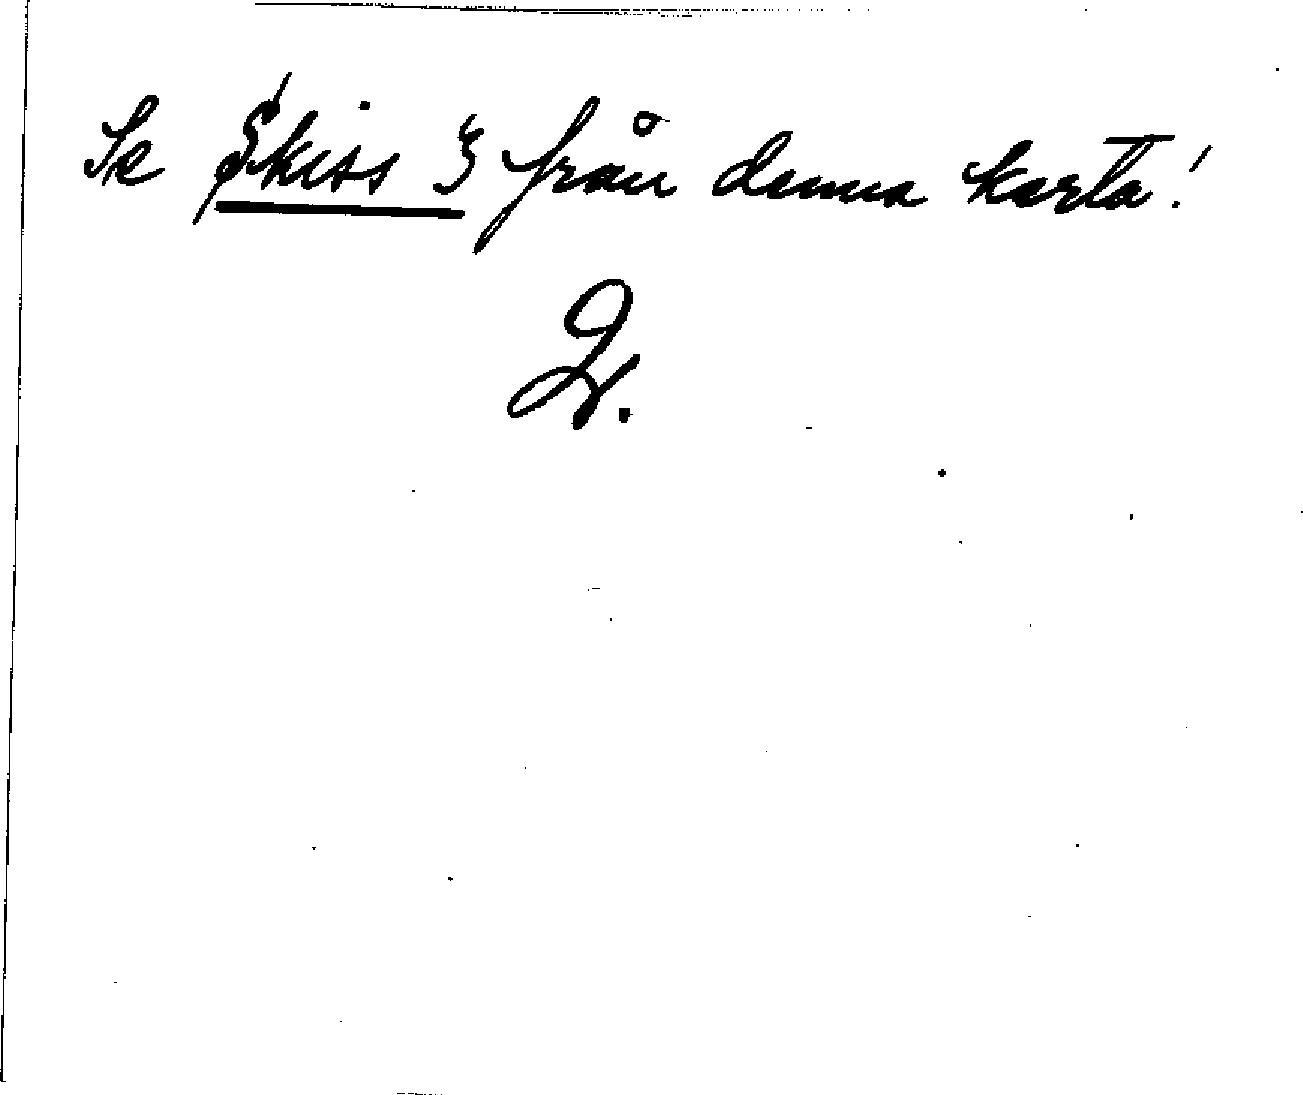 Se Skiss 3 från denna karta!